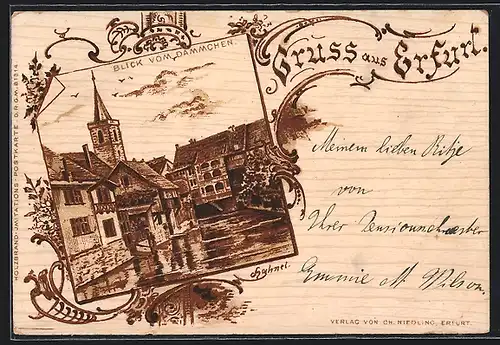 HOLZBRAND-IMITATIONS-POSTKARTE. D.R.G.M. 81814.
BLICK VOM DÄMMCHEN.
Gruss aus Erfurt.
Meinem lieben
von
Ihrer
Wilson.
Hahnel.
VERLAG VON CH. NIEDLING, ERFURT.